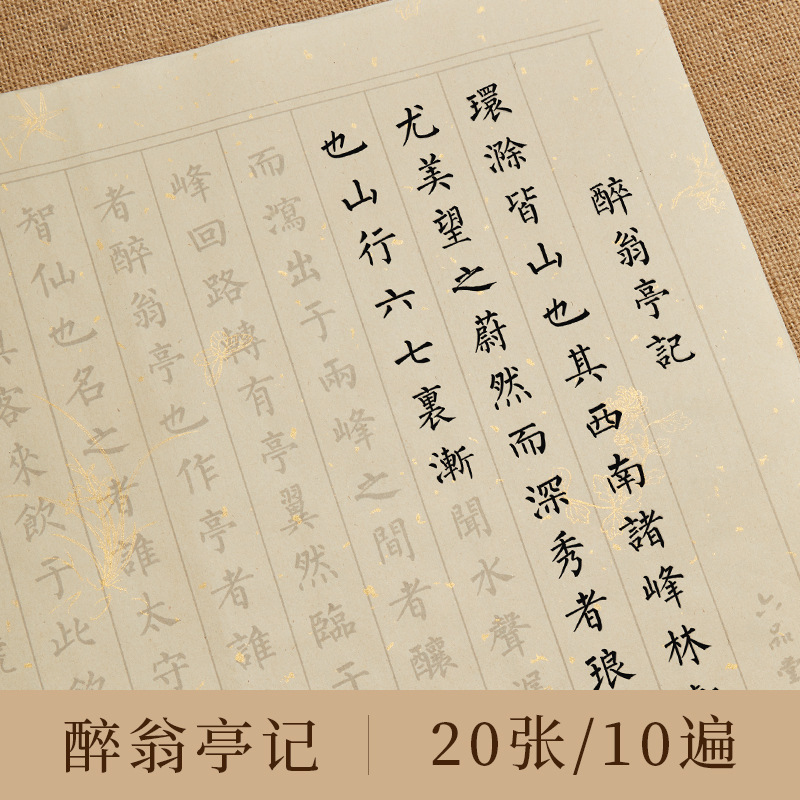 醉翁亭記
環滁皆山也其西南諸峰林
尤美望之蔚然而深秀者琅
也山行六七裏漸聞水聲潺
而瀉出于兩峰之間者釀
峰回路轉有亭翼然臨于
者醉翁亭也作亭者誰
智仙也名之者誰太守
客來飲于此飲
六品堂
醉翁亭记
20张/10遍